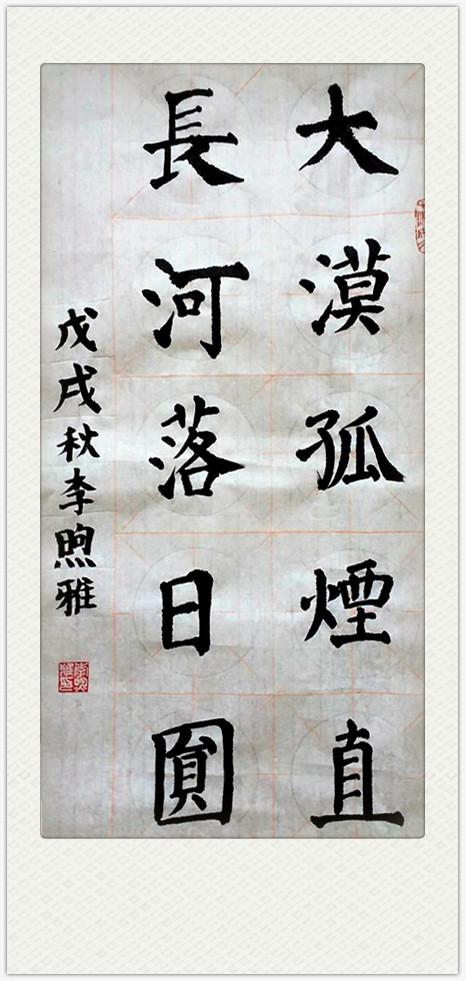 大漠孤煙直
長河落日圓
戊戌秋李煦雅